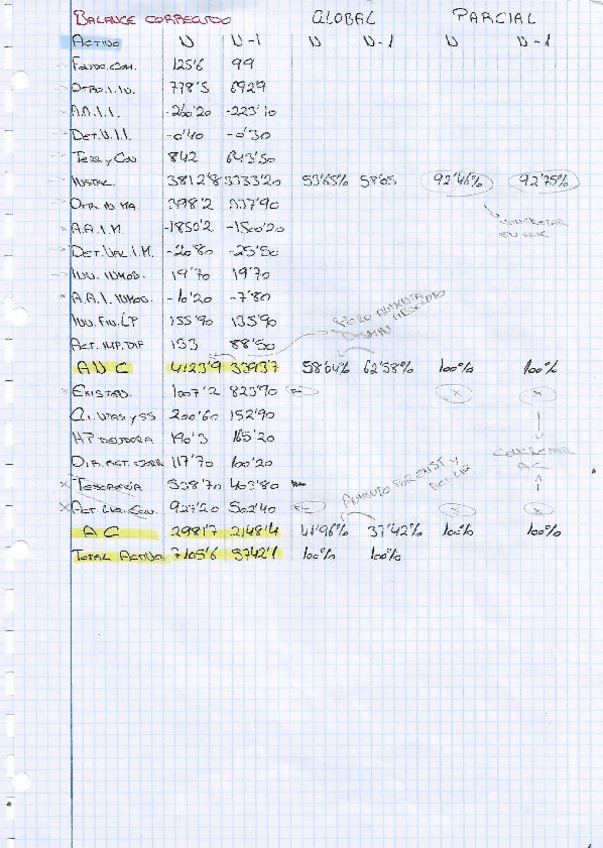 BALANCE CORREGIDO GLOBAL PARCIAL
ACTIVO N N-1 N N-1 N N-1
FONDO.COM. 125'6 99
OTRO.I.IN. 778'5 692'9
A.A.I.I. -260'20 -223'10
DET.V.I.I. -0'40 -0'30
TERR y CON 842 643'50
INSTAL. 3812'8 3333'20 53'65% 58'05 92'46% 92'75%
OTR.IN MA. 398'2 337'90
CONCRETAR
A.A.I.M. -1850'2 -1500'20
DET.VAL.I.M. -20'80 -25'50
INV. INMOB. 19'70 19'70
A.A.I. INMOB. -10'20 -7'80
INV. FIN.LP 155'90 135'90
ACT. IMP. DIF 133 88'50
ANC 4123'9 3393'7 58'04% 62'58% 100% 100%
EXISTEN. 1007'2 823'90 x x
CLI. VTAS y SS 200'60 152'90
HP DEUDORA 190'3 165'20
CONCRETAR
AC
DIR. ACT. CORR 117'70 100'20
x TESORERÍA 538'70 403'80
AUMENTO POR EXIST y ACT LIQ
x ACT. LIQ. CON. 927'20 502'40 x x
AC 2981'7 2148'4 41'96% 37'42% 100% 100%
TOTAL ACTIVO 7105'6 5742'1 100% 100%